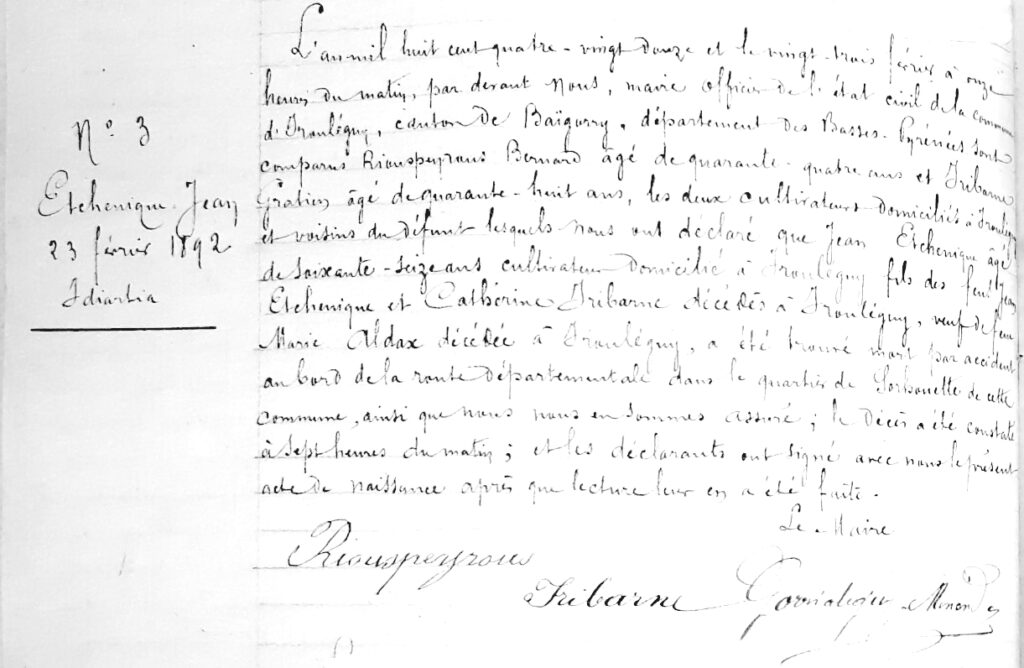 N° 3
Etchenique Jean
23 février 1892
Idiartia
L'an mil huit cent quatre-vingt douze et le vingt-trois février à onze
heures du matin, par devant nous, maire officier de l'état civil de la commune
d'Irouléguy, canton de Baïgorry, département des Basses-Pyrénées sont
comparus Riouspeyrous Bernard âgé de quarante-quatre ans et Iribarne
Gratien âgé de quarante-huit ans, les deux cultivateurs domiciliés à Irouléguy
et voisins du défunt lesquels nous ont déclaré que Jean Etchenique âgé
de soixante-seize ans cultivateur domicilié à Irouléguy fils des feus Jean
Etchenique et Cathérine Iribarne décédés à Irouléguy, veuf de feue
Marie Aldax décédée à Irouléguy, a été trouvé mort par accident
au bord de la route départementale dans le quartier de Sorhouette de cette
commune, ainsi que nous nous en sommes assuré ; le décès a été constaté
à sept heures du matin ; et les déclarants ont signé avec nous le présent
acte de naissance après que lecture leur en a été faite.
Le Maire
Riouspeyrous
Iribarne